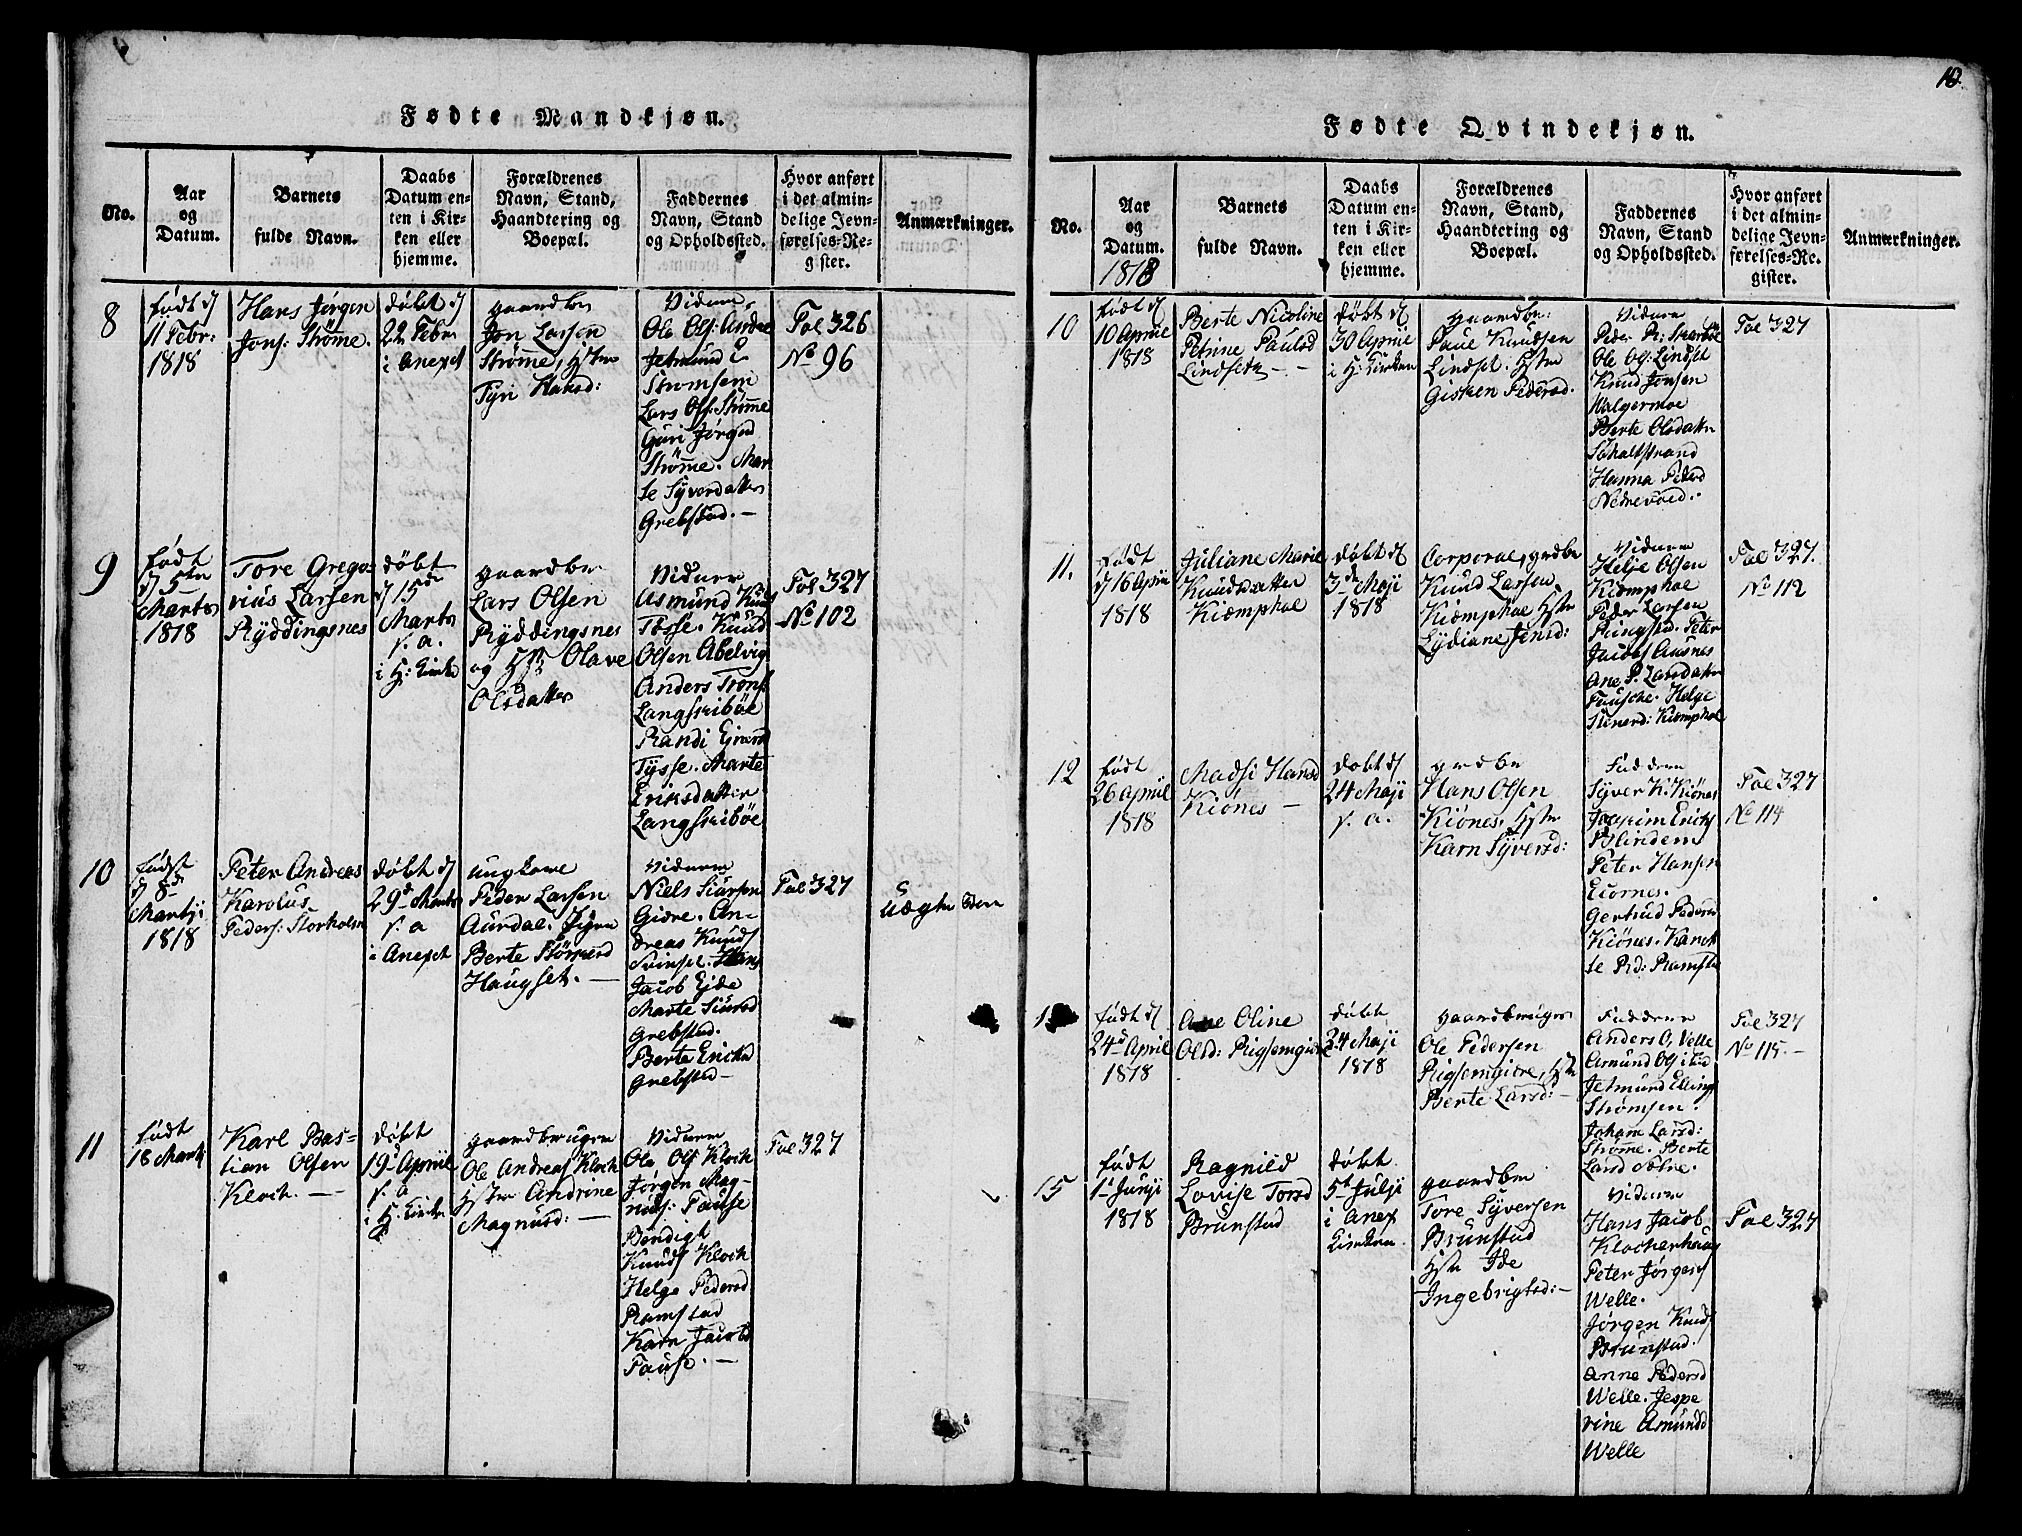 10.
Fødte Mandkjøn.
No.
Aar
og
Datum.
Barnets
fulde Navn.
Daabs
Datum en-
ten i Kir-
ken eller
hjemme.
Forældrenes
Navn, Stand,
Haandtering og
Boepæl.
Faddernes
Navn, Stand
og Opholdssted.
Hvor anført
i det almin-
delige Jevn-
førelses-Re-
gister.
Anmærkninger.
8
født d
11 Febr:
1818
Hans Jørgen
Jons: Strømme.
døbt d
22 Febr
i Anexet
gaardbr
Jon Larsen
Strømme, Hstr
Tyri Hansd:
Vidnere
Ole Ols: Andre
Jetmund
Strømsem
Lars Ols: Strømme
Guri Jørgsd
Strømme. Mar
te Syverdatter
Grebstad. —
Fol 326
No 96
9
født
d 5te
Marts
1818
Tore Grego-
rius Larsen
Ryddingsnes
døbt
d 15de
Marts
s. a.
i H: Kirke
gaardbr
Lars Olsen
Ryddingsnes
og Hstr Olave
Olsdatter
Vidner
Asmund Knuds
Tøsse. Knud
Olsen Abelvig
Anders Trons
Langskibøe
Randi Einersd
Tysse. Marte
Eriksdatter
Langskibøe
Fol 327
No 102
10
født
d 8de
Martji
1818
Peter Andreas
Karolus
Peders: Storholm
døbt d
29d Marts
s. a
i Anexet
ungkarl
Peder Larsen
Aurdal. Pigen
Berte Størkersd
Haugset. —
Vidnere
Niels Siursen
Giære. An-
dreas Knuds
Svinset. Hans
Jacob Eide
Marte Siursd
Grebstad.
Berte Ericksd
Grebstad —
Fol 327
Uægte Børn
11
født
18 Martj
Karl Bas-
tian Olsen
Kloch. —
døbt
19d Apriil
s. a
i H. Kirken
gaardbruger
Ole Andreas Kloch
Hstr Andrine
Magnusd: —
Vidnere
Ole Ols Kloch
Jørgen Mag-
nus: Fause
Bendigt
Knuds Kloch
Helge Pedersd
Ramstad
Karn Jacobsd
Fause. —
Fol 327
Fødte Qvindekjøn.
No.
Aar
og
Datum.
1818
Barnets
fulde Navn.
Daabs
Datum en-
ten i Kir-
ken eller
hjemme.
Forældrenes
Navn, Stand,
Haandtering og
Boepæl.
Faddernes
Navn, Stand
og Opholdssted.
Hvor anført
i det almin-
delige Jevn-
førelses-Re-
gister.
Anmærkninger.
10
født d
10 Apriil
1818
Berte Nicoline
Petrine Paulsd
Lindseth - -
døbt d
30 Apriil
i H: Kirken
gaardbr:
Paul Knudsen
Lindset. Hstr
Gisken Pedersd.
Vidnere
Peder P:
Ole Og: Lindset
Knud Jonsen
Walgermoe
Berte Olsdattr
Søholtstrand
Hanna Pedersd
Nedrevold.
Fol 327
11.
født
d 16 Apriil
1818
Juliane Marie
Knudsdatter
Kiemphol
døbt d
3de Maji
1818
Corporal, grdbr
Knud Larsen
Kiemphol Hstr
Lydiane Jensd:
Vidnere
Helje Olsen
Kiemphol
Peder Larsen
Ringstad. Peter
Jacobs Ausnes
Ane P. Larsdattr
Fausche. Helge
Stenersd: Kiemphol
Fol 327.
No 112
12
født
26 Apriil
1818
Madsi Hansd
Kiønes —
døbt d
24 Maji
s. a.
grdbr
Hans Olsen
Kiønes. Hstr
Karn Syversd:
Faddere
Syver K. Kiønes
Joachim Ericks
Blindem
Peter Hansen
Eiornes.
Gertrud Pedersd
Kiønes. Karen
Prd: Ramstd
Fol 327
No 114
født d
24d April
1818
Ane Oline
Olsd: Rigsemgiere
døbt
24 Maji
1818
gaardbruger
Ole Pedersen
Rigsemgiere, Hstr
Berte Larsd: —
Faddere
Anders O. Velle
Amund Ols
Jetmund Ellings
Strømsem.
Johane Larsd:
Strømme. Berte
Fol 327
No 115. —
15
født
1d Junji
1818
Ragnild
Lovise Torsd
Brunstad
døbt
5t Julji
i Anex
Kirken.
gaardbr
Tore Syversen
Brunstad
Hstr Ide
Ingebrigtsd: —
Vidnere
Hans Jacob
Klocherhaug
Peter Jørgens
Welle.
Jørgen Knuds
Brunstad.
Anne Pedersd
Welle. Jespe
rine Amundsd
Welle
Fol 327